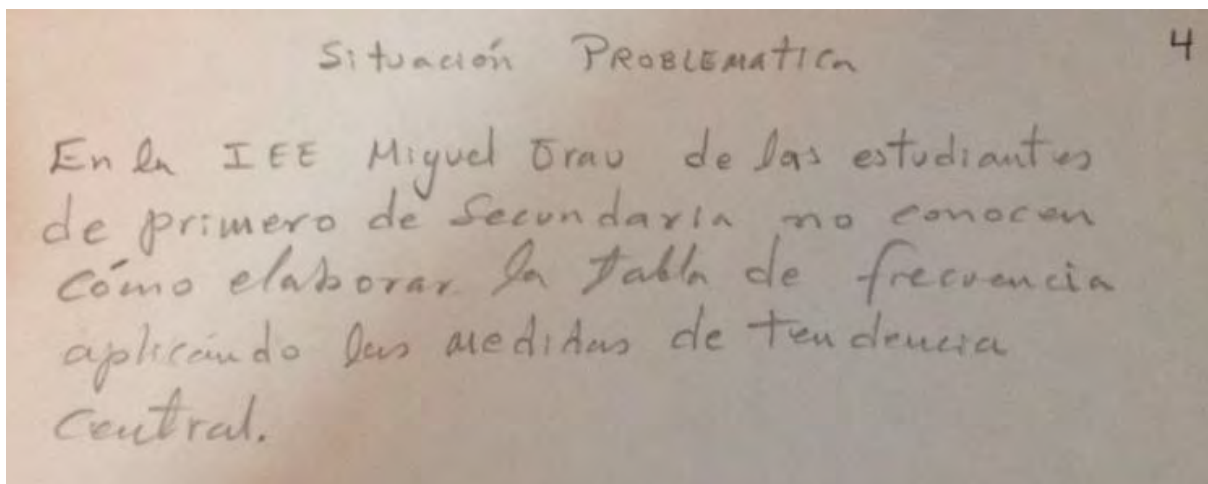 Situación PROBLEMATICA
4
En la IEE Miguel Grau de las estudiantes
de primero de Secundaria no conocen
cómo elaborar la tabla de frecuencia
aplicando las medidas de tendencia
central.